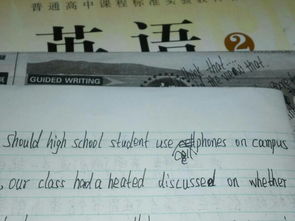 普通高中课程标准实验教
英语 2
GUIDED WRITING
that
Should high school student use cellphones on campus
, our class had a heated discussed on whether